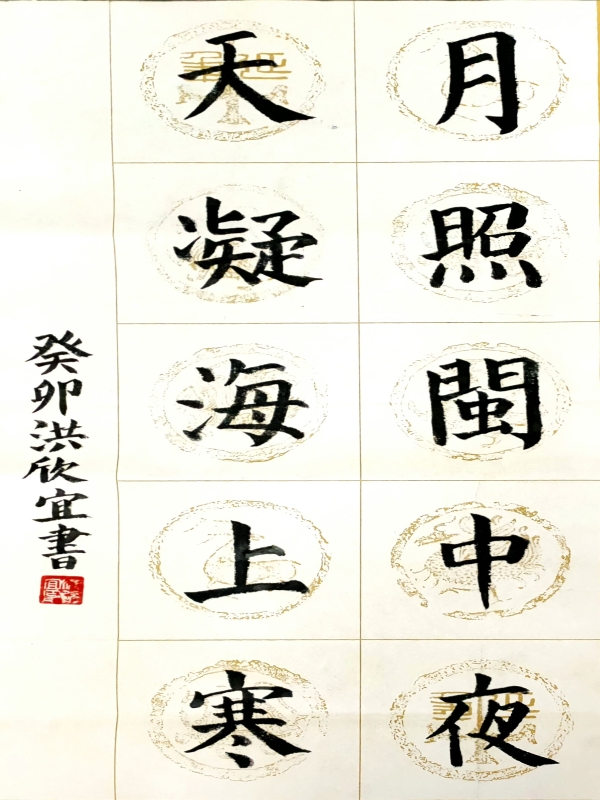 月照閩中夜
天凝海上寒
癸卯洪欣宜書